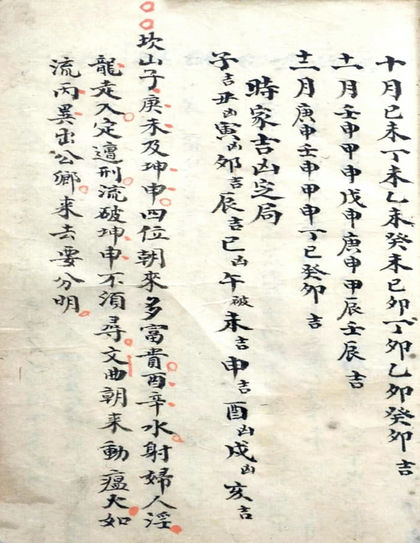 十月己未丁未乙未癸未己卯丁卯乙卯癸卯吉
十一月壬申甲申戊申庚申甲辰壬辰吉
十二月庚申壬申甲申丁巳癸卯吉
時家吉凶定局
子吉丑凶寅凶卯吉辰吉巳凶午破未吉申吉酉凶戌凶亥吉
坎山子庚未及坤申四位朝來多富貴酉辛水射婦人淫
龍走入定遭刑流破坤申不須尋文曲朝來動瘟火如
流丙異出公卿來去要分明